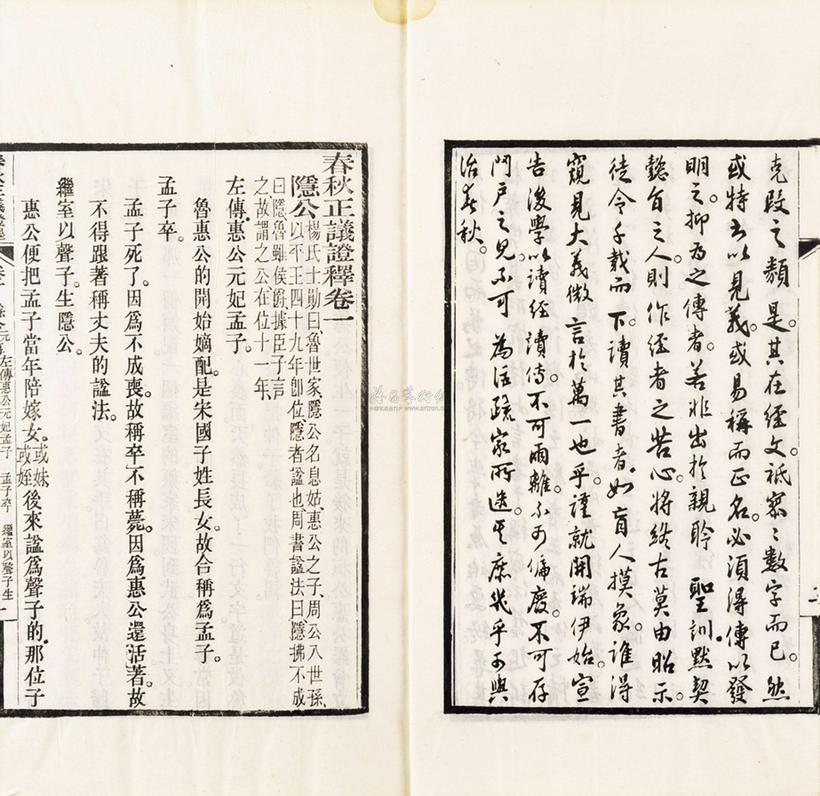 克段之類是。其在經文祗寥々數字而已。然
或特書以見義。或易稱而正名。必須得傳以發
明之。抑為之傳者。若非出於親聆 聖訓默契
懿旨之人。則作經者之苦心。將終古莫由昭示
徒令千載而下。讀其書者。如盲人摸象。誰得
窺見大義微言於萬一也乎。謹就開端伊始。宣
告後學以讀經讀傳。不可兩離。不可偏廢。不可存
門戶之見。不可為注疏家所迷。其庶幾乎可與
治春秋。
春秋正議證釋卷一
隱公
楊氏士勛曰魯世家隱公名息姑惠公之子周公八世孫
以平王四十九年卽位隱者謚也周書謚法曰隱拂不成
曰隱魯雖侯爵據臣子言
之故謂之公在位十一年
左傳。惠公元妃孟子。
魯惠公的開始嫡配。是宋國子姓長女。故合稱爲孟子。
孟子卒。
孟子死了。因爲不成喪。故稱卒不稱薨。因爲惠公還活著。故
不得跟著稱丈夫的謚法。
繼室以聲子。生隱公。
惠公便把孟子當年陪嫁女。或妹或姪後來謚爲聲子的。那位子
左傳惠公元妃孟子 孟子卒 繼室以聲子生 一